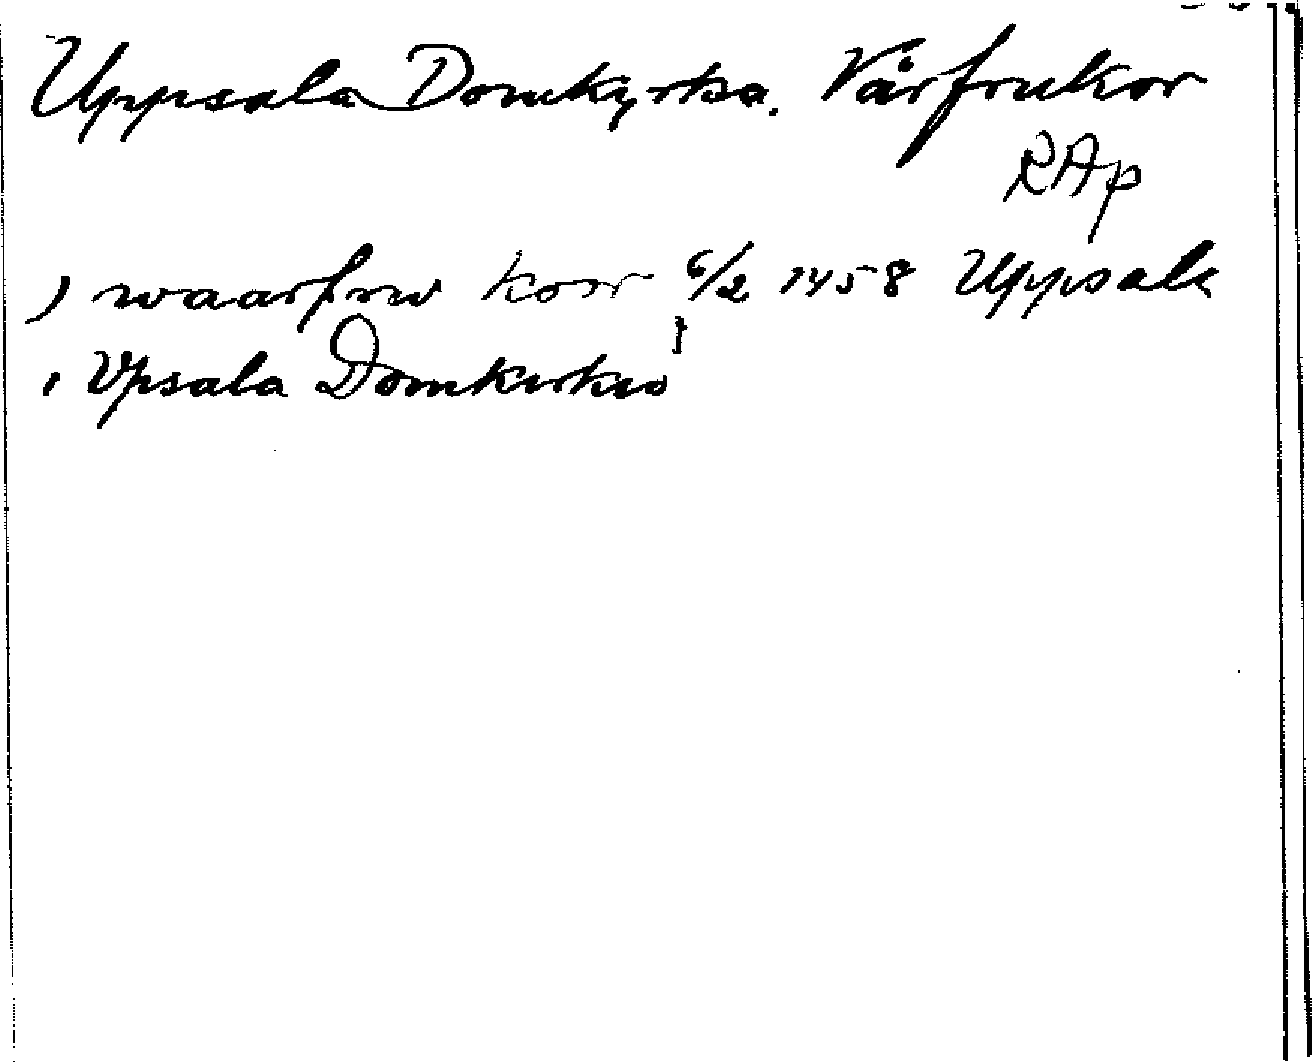 Uppsala Domkyrka. Vårfrukor
RAp
) waarfrw koor 6/2 1458 Uppsala
i Vpsala Domkirkio